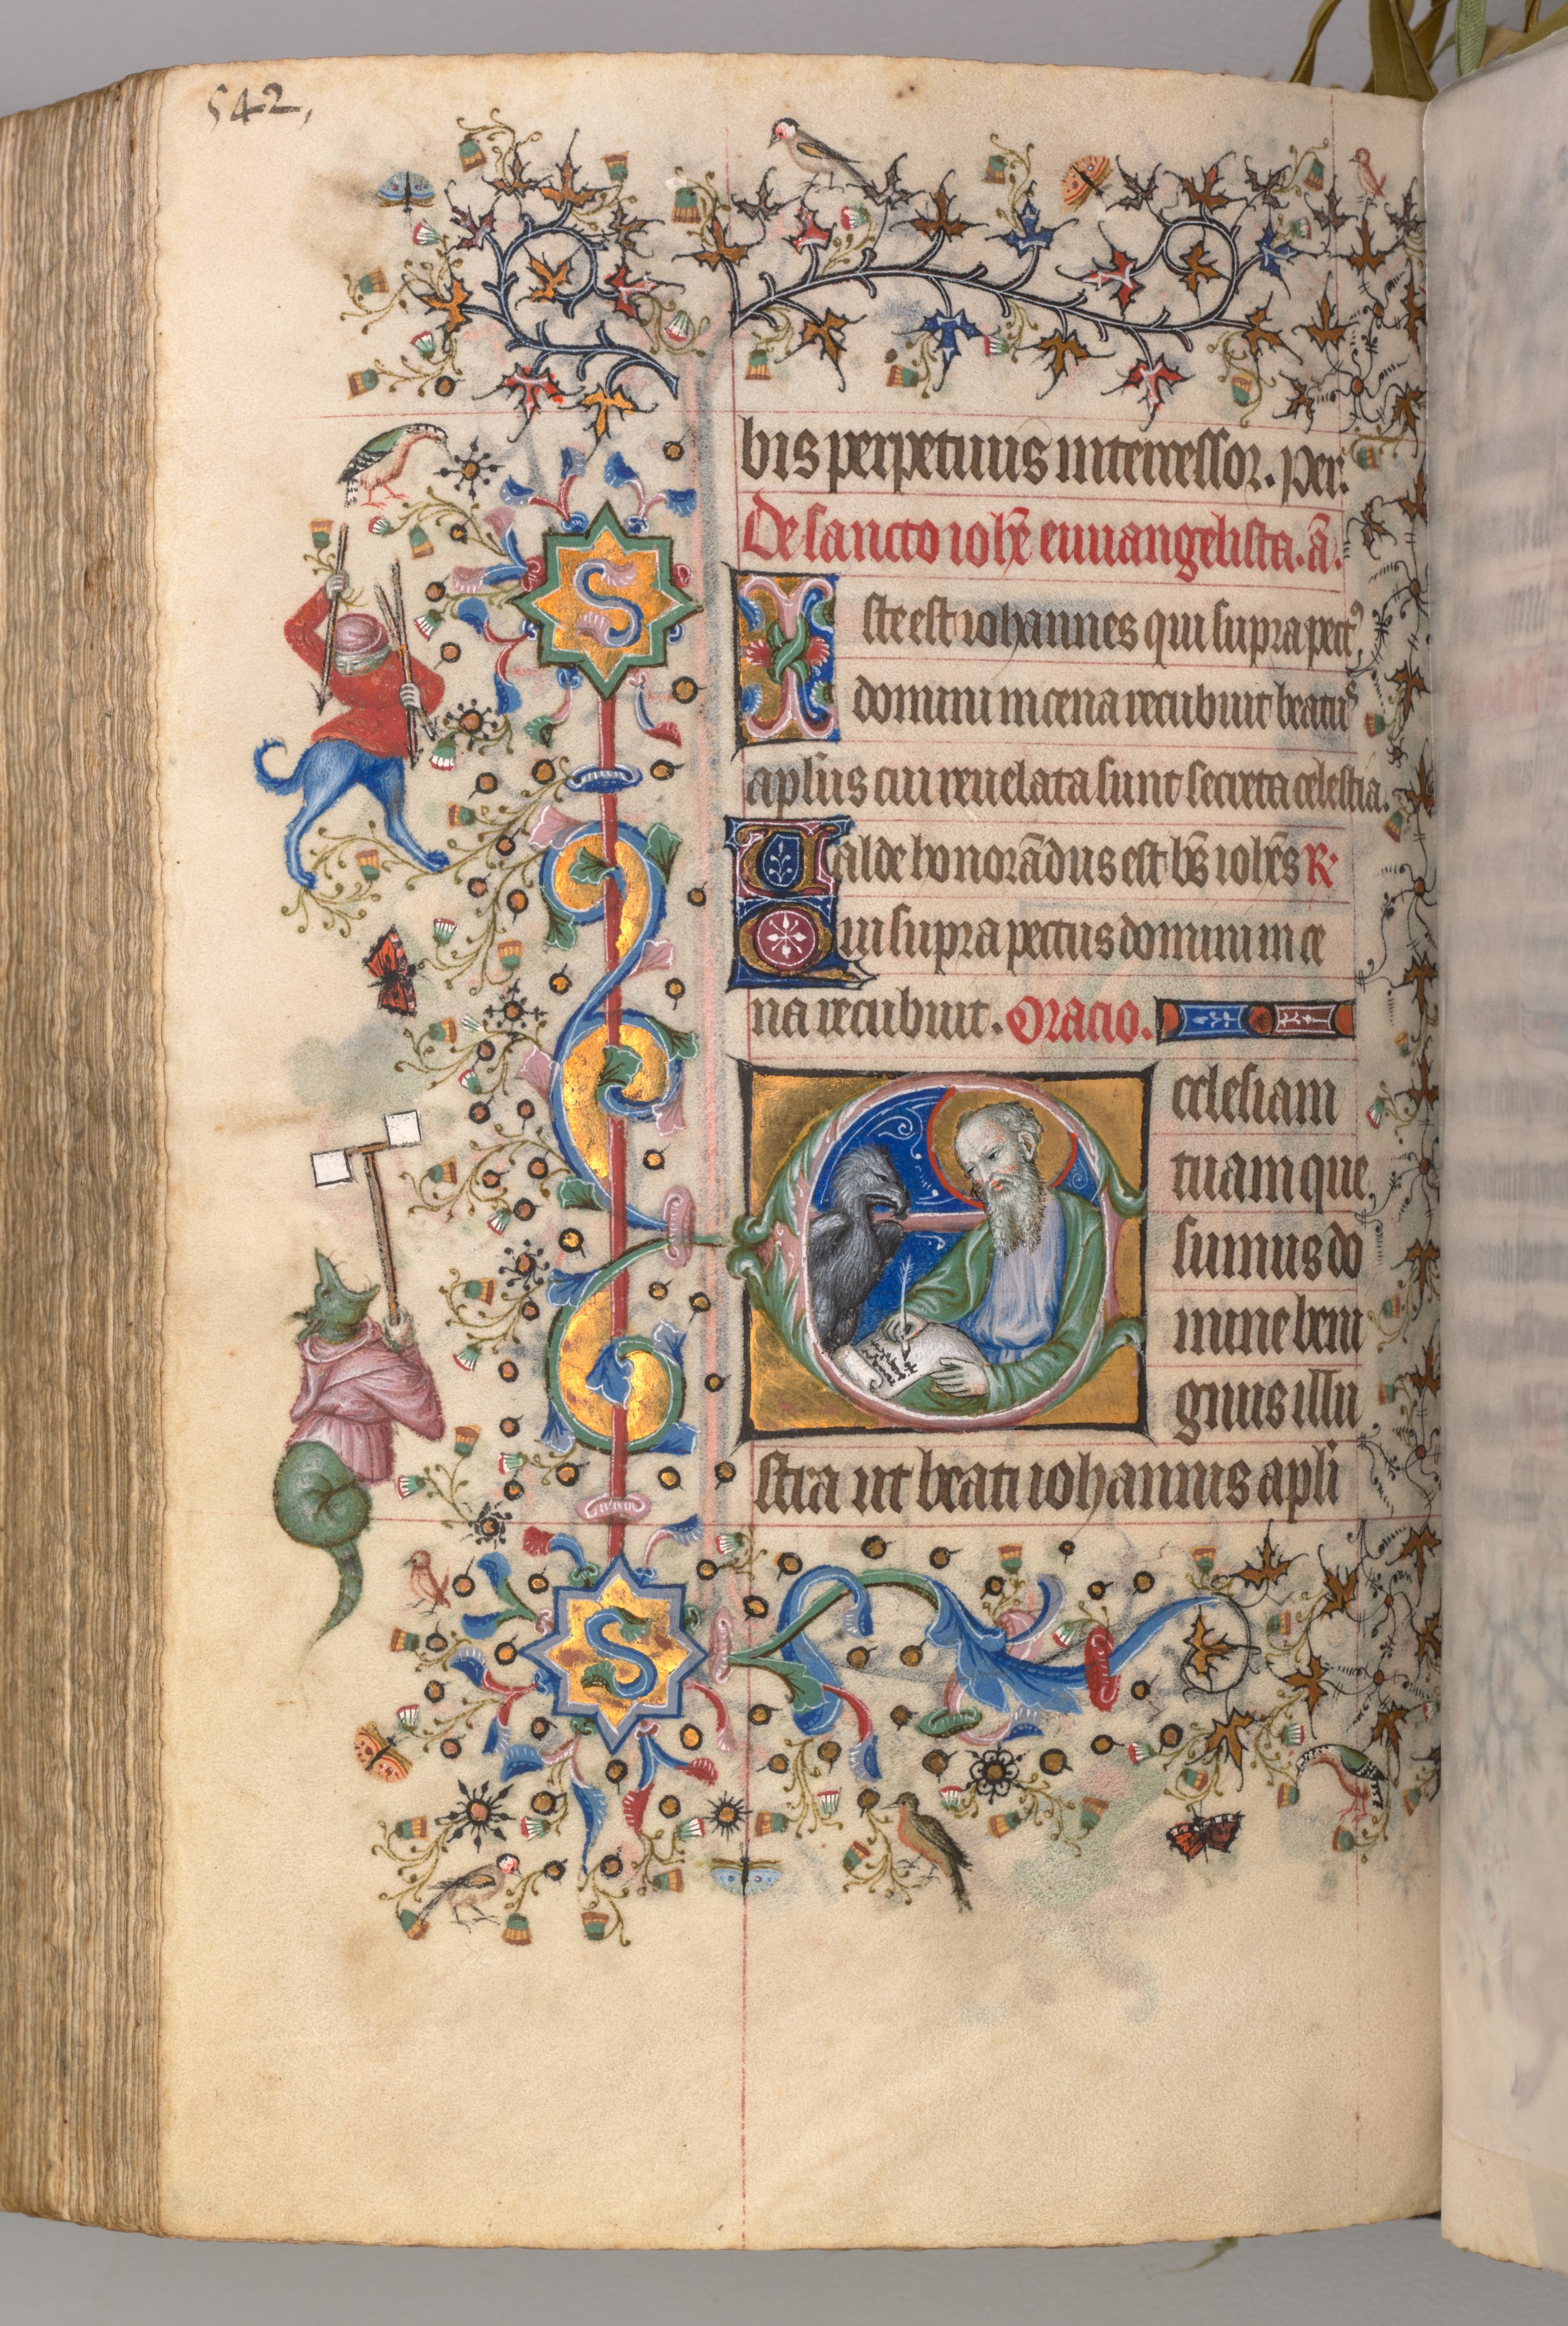 542,
bis perpetuus intercessor. Per.
De sancto ioh̄e euuangelista. a̅.
Iste est iohannes qui supra pectꝰ
domini in cena recubuit beatꝰ
aplus cui reuelata sunt secreta celestia.
Ualde honorādus est bs̄ ioh̄es R.
Qui supra pectus domini in ce
na recubuit. Oracio.
Ecclesiam
tuam que
sumus do
mine beni
gnus illu
stra ut beati iohannis apli
S
S